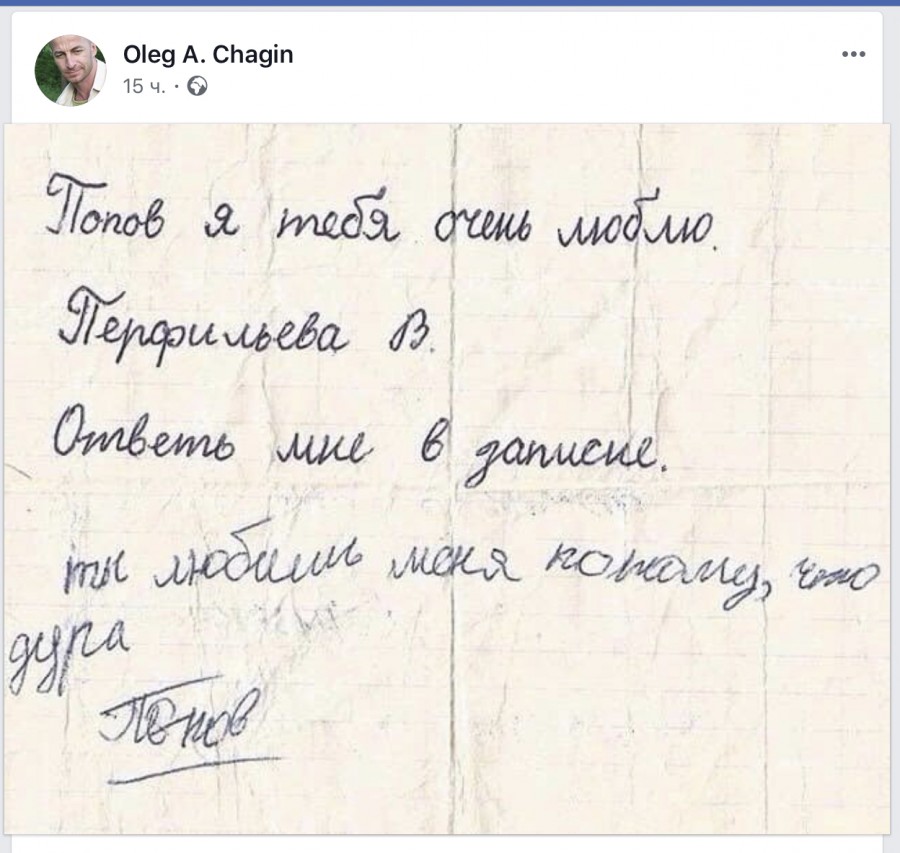 Oleg A. Chagin
15 ч. ·
Попов я тебя очень люблю.
Перфильева В.
Ответь мне в записке.
ты любишь меня потому, что
дура
Попов